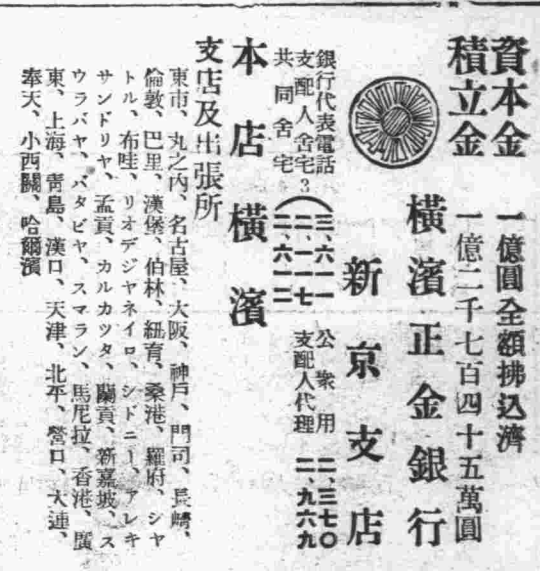 資本金 一億圓全額拂込濟
積立金 一億二千七百四十五萬圓
橫濱正金銀行
新京支店
銀行代表電話 三、六一一
支配人舍宅3 二、一一七
共同舍宅 二、六一二
公衆用 二、三七〇
支配人代理 二、九六九
本店 橫濱
支店及出張所
東市、丸之內、名古屋、大阪、神戶、門司、長崎、
倫敦、巴里、漢堡、伯林、紐育、桑港、羅府、シヤ
トル、布哇、リオデジヤネイロ、シドニー、アレキ
サンドリヤ、孟買、カルカツタ、蘭貢、新嘉坡、ス
ウラバヤ、バタビヤ、スマラン、馬尼拉、香港、廣
東、上海、靑島、漢口、天津、北平、營口、大連、
奉天、小西關、哈爾濱